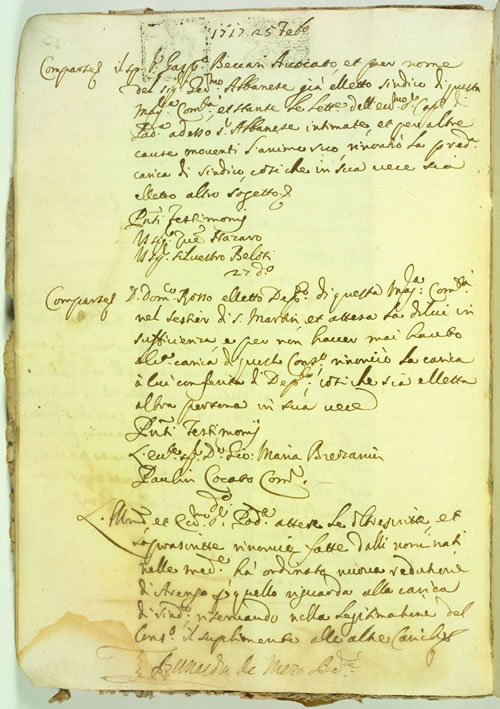 1717 25 Feb.o
Comparse il sp. S.r Gasp.o Beccari Avocato et per nome
del sig.r Geo. Albanese già elletto sindico di questa
Mag.ca Com.tà, et stante le lett.e dell'
Pod.a adesso s.r Albanese intimate, et per altre
cause moventi l'animo suo rinontiò la pred.a
carica di sindico, così che in sua vece sia
elletto altro sogetto
Pnti Testimonij
Nazaro
Silvestro Beloti
27 d.o
Comparse D. Dom.co Rosso elletto Dep.to di questa Mag.ca Com.tà
nel sestier di S. Martin, et attesa la di lui in
sufficienza e per non haver mai havuto
alc.a carica di questo Cons.o rinontiò la carica
à lui conferita di Dep.to, così che sia elletta
altra persona in sua vece
Pnti Testimonij
Maria
Paulin Cocato Com.r
L'Illmo et Ecc.mo S.r Pod.a attese le oltrescritte et
soprascritte rinoncie fatte dalli nominati
nelle med.e hà ordinata nuova redutione
di Arengo per quello riguarda alla carica
di Sind.o riservando nella legitimatione del
Cons.o il suplimento alle altre cariche
de Mezo